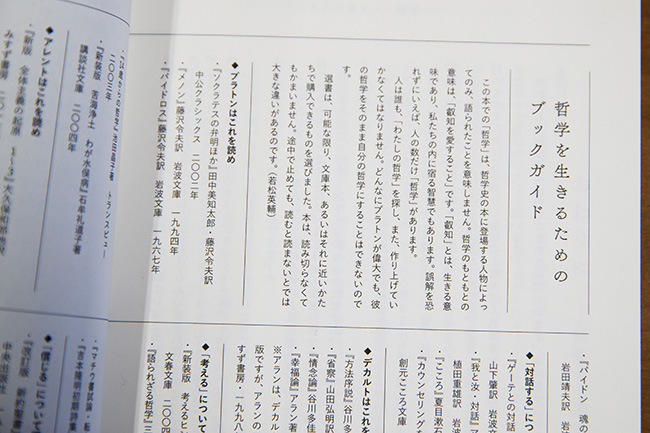 哲学を生きるための
ブックガイド
この本での「哲学」は、哲学史の本に登場する人物によっ
てのみ、語られたことを意味しません。哲学のもともとの
意味は、「叡知を愛すること」です。「叡知」とは、生きる意
味であり、私たちの内に宿る智慧でもあります。誤解を恐
れずにいえば、人の数だけ「哲学」があります。
人は誰も、「わたしの哲学」を探し、また、作り上げてい
かなくてはなりません。どんなにプラトンが偉大でも、彼
の哲学をそのまま自分の哲学にすることはできないので
す。
選書は、可能な限り、文庫本、あるいはそれに近いかた
ちで購入できるものを選びました。本は、読み切らなくて
もかまいません。途中で止めても、読むと読まないとでは
大きな違いがあるのです。（若松英輔）
◆プラトンはこれを読め
・『ソクラテスの弁明ほか』田中美知太郎・藤沢令夫訳
中公クラシックス　二〇〇二年
・『メノン』藤沢令夫訳　岩波文庫　一九九四年
・『パイドロス』藤沢令夫訳　岩波文庫　一九六七年
・『パイドン　魂の
岩田靖夫訳　岩
◆「対話する」につ
・『ゲーテとの対話
山下肇訳　岩波
・『我と汝・対話』マ
植田重雄訳　岩波
・『こころ』夏目漱石
・『カウンセリングを
創元こころ文庫
◆デカルトはこれを
・『方法序説』谷川多
・『省察』山田弘明訳
・『情念論』谷川多佳
・『幸福論』アラン著
※アランは、デカル
版ですが、アランの
すず書房・一九九八
◆「考える」について
・『新装版　考えるヒン
文春文庫　二〇〇四
・『語られざる哲学』三
池田晶子著　トランスビュー
二〇〇三年
・『新装版　苦海浄土　わが水俣病』石牟礼道子著
講談社文庫　二〇〇四年
◆アレントはこれを読め
・『新版　全体主義の起原　1〜3』大久保和郎他訳
みすず書房
・『マチウ書試論・転
・『吉本隆明初期詩集
◆「信じる」について
・『改訂版　新約聖書
中央出版社